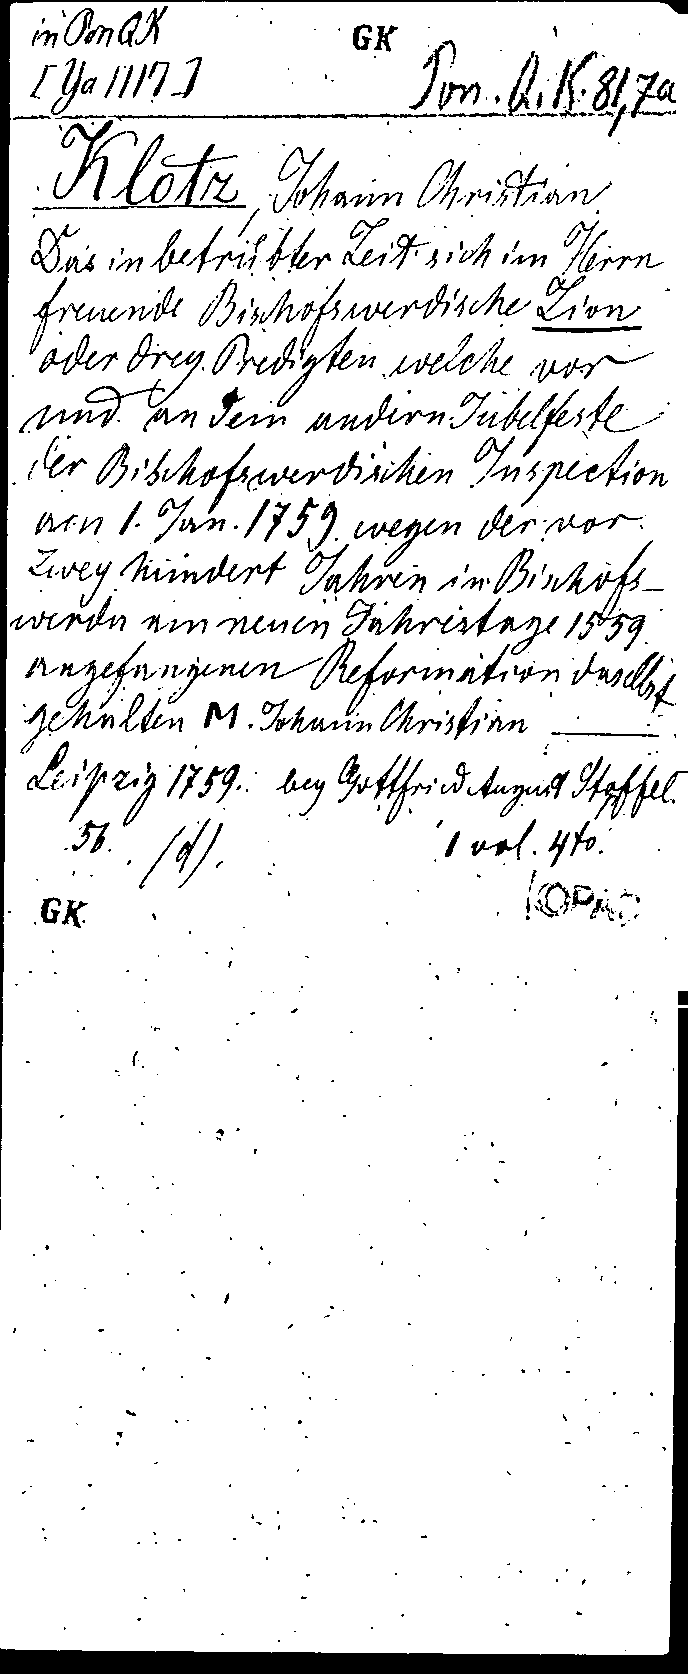 in Pon QK
GK
[Ya 1117]
Pon. Q. K. 81,7a
Klotz, Johann Christian
Das in betrübter Zeit sich im Herrn
freuende Bischofswerdische Zion
oder drey Predigten welche vor
und an dem andern Jubelfeste
der Bischofswerdischen Inspection
am 1. Jan. 1759 wegen der vor
zwey hundert Jahren in Bischofs-
werda am neuen Jahrestage 1559
angefangenen Reformation daselbst
gehalten M. Johann Christian ———
Leipzig 1759. bey Gottfried August Stoffel.
56. (d). 1 vol. 4to.
GK